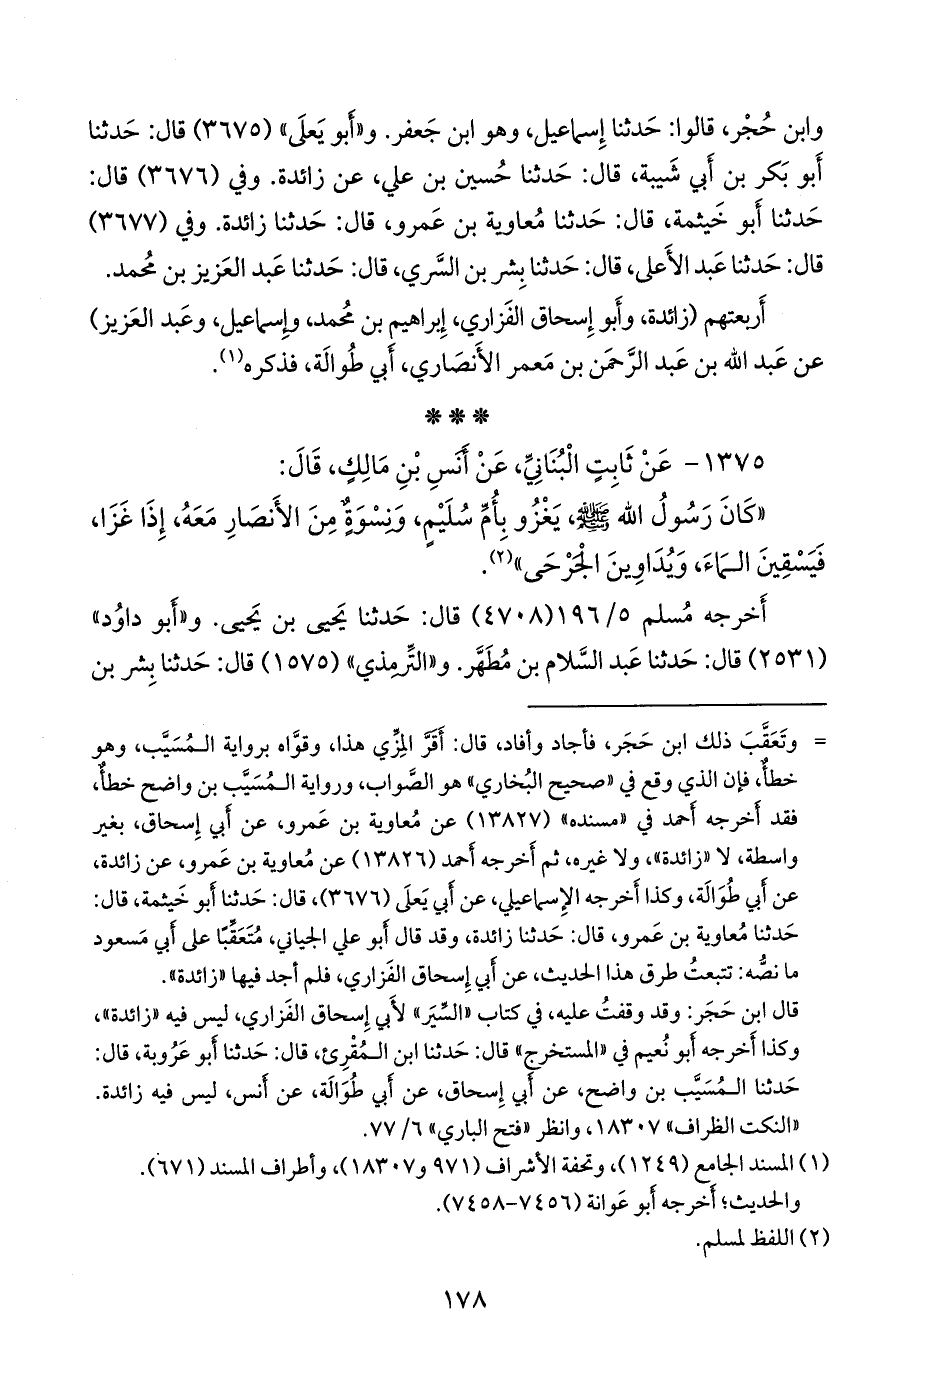 وابن حُجْر، قالوا: حَدثنا إِسماعيل، وهو ابن جَعفر. و«أَبو يَعلَى» (٣٦٧٥) قال: حَدثنا
أَبو بَكر بن أَبي شَيبة، قال: حَدثنا حُسين بن علي، عن زائدة. وفي (٣٦٧٦) قال:
حَدثنا أَبو خَيثمة، قال: حَدثنا مُعاوية بن عَمرو، قال: حَدثنا زائدة. وفي (٣٦٧٧)
قال: حَدثنا عَبد الأَعلى، قال: حَدثنا بِشر بن السَّري، قال: حَدثنا عَبد العَزيز بن مُحمد.
أَربعتهم (زائدة، وأَبو إِسحاق الفَزاري، إِبراهيم بن مُحمد، وإِسماعيل، وعَبد العَزيز)
عن عَبد الله بن عَبد الرَّحمَن بن مَعمر الأَنصَاري، أَبي طُوالَة، فذكره(١).
***
١٣٧٥- عَنْ ثَابِتٍ الْبُنَانِيِّ، عَنْ أَنَسِ بْنِ مَالِكٍ، قَالَ:
«كَانَ رَسُولُ الله ﷺ، يَغْزُو بِأُمِّ سُلَيْمٍ، وَنِسْوَةٌ مِنَ الأَنْصَارِ مَعَهُ، إِذَا غَزَا،
فَيَسْقِينَ الـمَاءَ، وَيُدَاوِينَ الْجَرْحَى»(٢).
أَخرجه مُسلم ٥/ ١٩٦(٤٧٠٨) قال: حَدثنا يَحيى بن يَحيى. و«أَبو داوُد»
(٢٥٣١) قال: حَدثنا عَبد السَّلام بن مُطَهَّر. و«التِّرمِذي» (١٥٧٥) قال: حَدثنا بِشر بن
= وتَعَقَّبَ ذلك ابن حَجَر، فأجاد وأفاد، قال: أَقَرَّ المِزِّي هذا، وقوَّاه برواية الـمُسَيَّب، وهو
خطأٌ، فإن الذي وقع في «صحيح البُخاري» هو الصَّواب، ورواية الـمُسَيَّب بن واضح خطأٌ،
فقد أَخرجه أَحمد في «مسنده» (١٣٨٢٧) عن مُعاوية بن عَمرو، عن أَبي إِسحاق، بغير
واسطة، لا «زائدة»، ولا غيره، ثم أَخرجه أَحمد (١٣٨٢٦) عن مُعاوية بن عَمرو، عن زائدة،
عن أَبي طُوَالَة، وكذا أَخرجه الإِسماعيلي، عن أَبي يَعلَى (٣٦٧٦)، قال: حَدثنا أَبو خَيثمة، قال:
حَدثنا مُعاوية بن عَمرو، قال: حَدثنا زائدة، وقد قال أَبو علي الجياني، مُتَعَقِّبًا على أَبي مَسعود
ما نصُّه: تتبعتُ طرق هذا الحديث، عن أَبي إِسحاق الفَزاري، فلم أجد فيها «زائدة».
قال ابن حَجَر: وقد وقفتُ عليه، في كتاب «السِّيَر» لأَبي إِسحاق الفَزاري، ليس فيه «زائدة»،
وكذا أَخرجه أَبو نُعيم في «المستخرج» قال: حَدثنا ابن الـمُقْرِئ، قال: حَدثنا أَبو عَرُوبة، قال:
حَدثنا الـمُسَيَّب بن واضح، عن أَبي إِسحاق، عن أَبي طُوَالَة، عن أَنس، ليس فيه زائدة.
«النكت الظراف» ١٨٣٠٧، وانظر «فتح الباري» ٦/ ٧٧.
(١) المسند الجامع (١٢٤٩)، وتحفة الأشراف (٩٧١ و١٨٣٠٧)، وأطراف المسند (٦٧١).
والحديث؛ أَخرجه أَبو عَوانة (٧٤٥٦-٧٤٥٨).
(٢) اللفظ لمسلم.
١٧٨